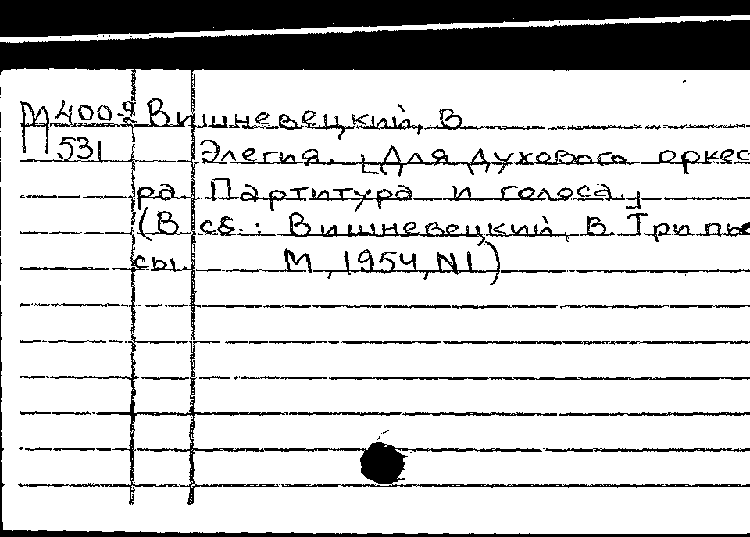 М400-9 Вишневецкий, В
П531 Элегия. [Для духового оркес
ра Партитура и голоса.]
(В сб.: Вишневецкий, В. Три пье
сы. М, 1954, N1)